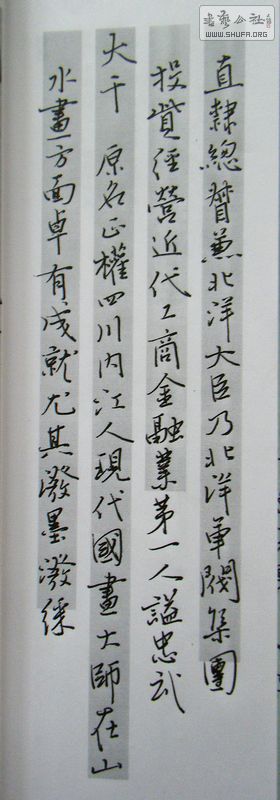 直隸總督兼北洋大臣乃北洋軍閥集團
投資經營近代工商金融業第一人謚忠武
大千 原名正權四川内江人現代國畫大師在山
水畫方面卓有成就尤其潑墨潑綵
書藝公社
WWW.SHUFA.ORG